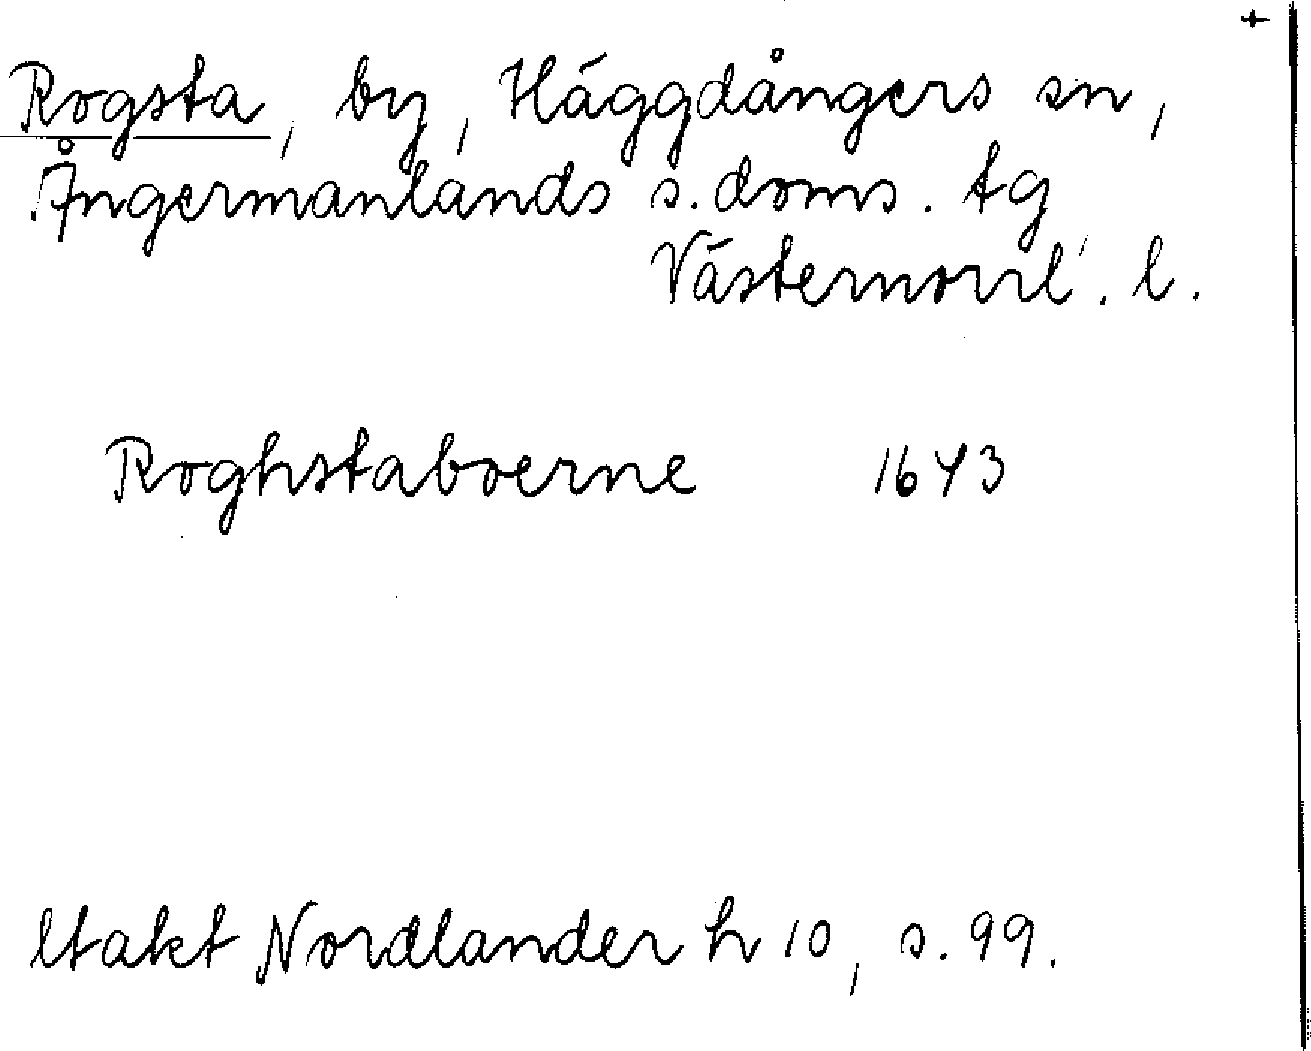 +
Rogsta, by, Häggdångers sn,
Ångermanlands s. doms. tg
Västernorrl. l.
Roghstaboerne 1643
ltakt Nordlander h 10, s. 99.